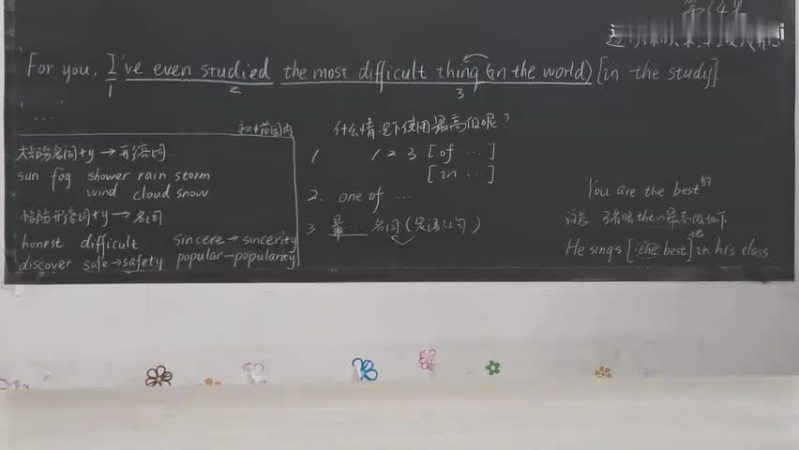 第14集
For you, I've even studied the most difficult thing (in the world) [in the study]
1 2 3
"..."
初中范围内
大部分名词+y→形容词
sun fog shower rain storm
wind cloud snow
部分形容词+y→名词
honest difficult sincere→sincerity
discover safe→safety popular→popularity
什么情况下使用最高级呢?
1 1 2 3 [of ...]
[in ...]
2. one of ...
3 最... 名词(定语从句)
You are the best的
注意 the 最高级
He sings [the best]地 in his class